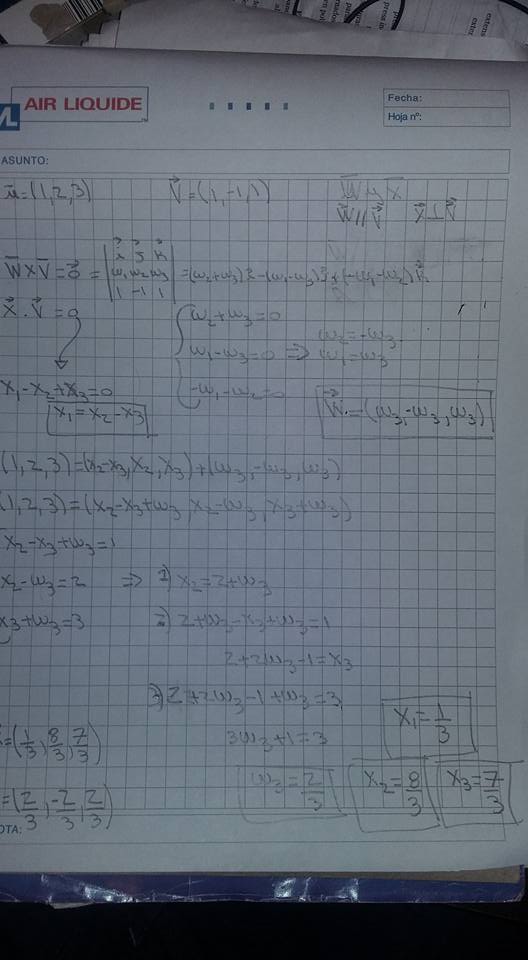 AIR LIQUIDE
Fecha:
Hoja nº:
ASUNTO:
u⃗=(1,2,3) V⃗=(1,-1,1) W⃗ y X⃗
W⃗//V⃗ X⃗⊥V⃗
W⃗×V⃗=0⃗ = |i j k; w₁ w₂ w₃; 1 -1 1| =(w₂+w₃)i-(w₁-w₃)j+(-w₁-w₂)k
X⃗.V⃗=0
{w₂+w₃=0
w₁-w₃=0 ⇒ w₂=-w₃
w₁=w₃
-w₁-w₂=0
x₁-x₂+x₃=0
x₁=x₂-x₃
W⃗=(w₃,-w₃,w₃)
(1,2,3)=(x₂-x₃,x₂,x₃)+(w₃,-w₃,w₃)
(1,2,3)=(x₂-x₃+w₃,x₂-w₃,x₃+w₃)
x₂-x₃+w₃=1
x₂-w₃=2 ⇒ 1) x₂=2+w₃
x₃+w₃=3 2) 2+w₃-x₃+w₃=1
2+2w₃-1=x₃
3) 2+2w₃-1+w₃=3
3w₃+1=3
w₃=2/3
x₁=1/3
x₂=8/3
x₃=7/3
=(1/3,8/3,7/3)
=(2/3,-2/3,2/3)
OTA: